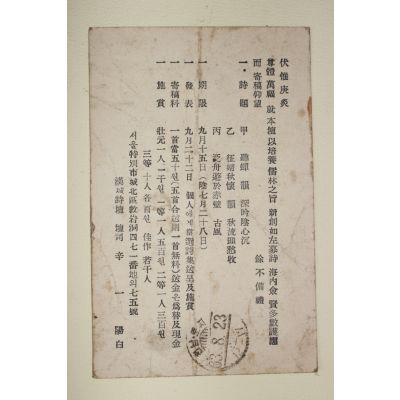 伏惟庚炎
尊體萬福 就本壇以培養 儒林之旨 新創如左募詩 海內僉賢多數
而 寄稿仰望
餘不備禮
一・詩題 甲 聽蟬 韻 深吟陰心沉
乙 征婦秋懷 韻 秋流 愁收
丙 泛舟遊於赤壁 古風
一 期限 九月十五日(陰七月二十八日)
一 發表 九月二十二日 個人에게 當選詩集送呈及施賞
一 寄稿料 一首當五十원(五首合送則一首無料)送金은爲替及現金
一 施賞 壯元一人二千원 一等一人五百원 二等一人三百원
三等十人各百원 佳作 若干人
서울特別市城北區敦岩洞四七一番地의七五號
漢城詩壇 壇司 辛 一 陽 白
63.8.23